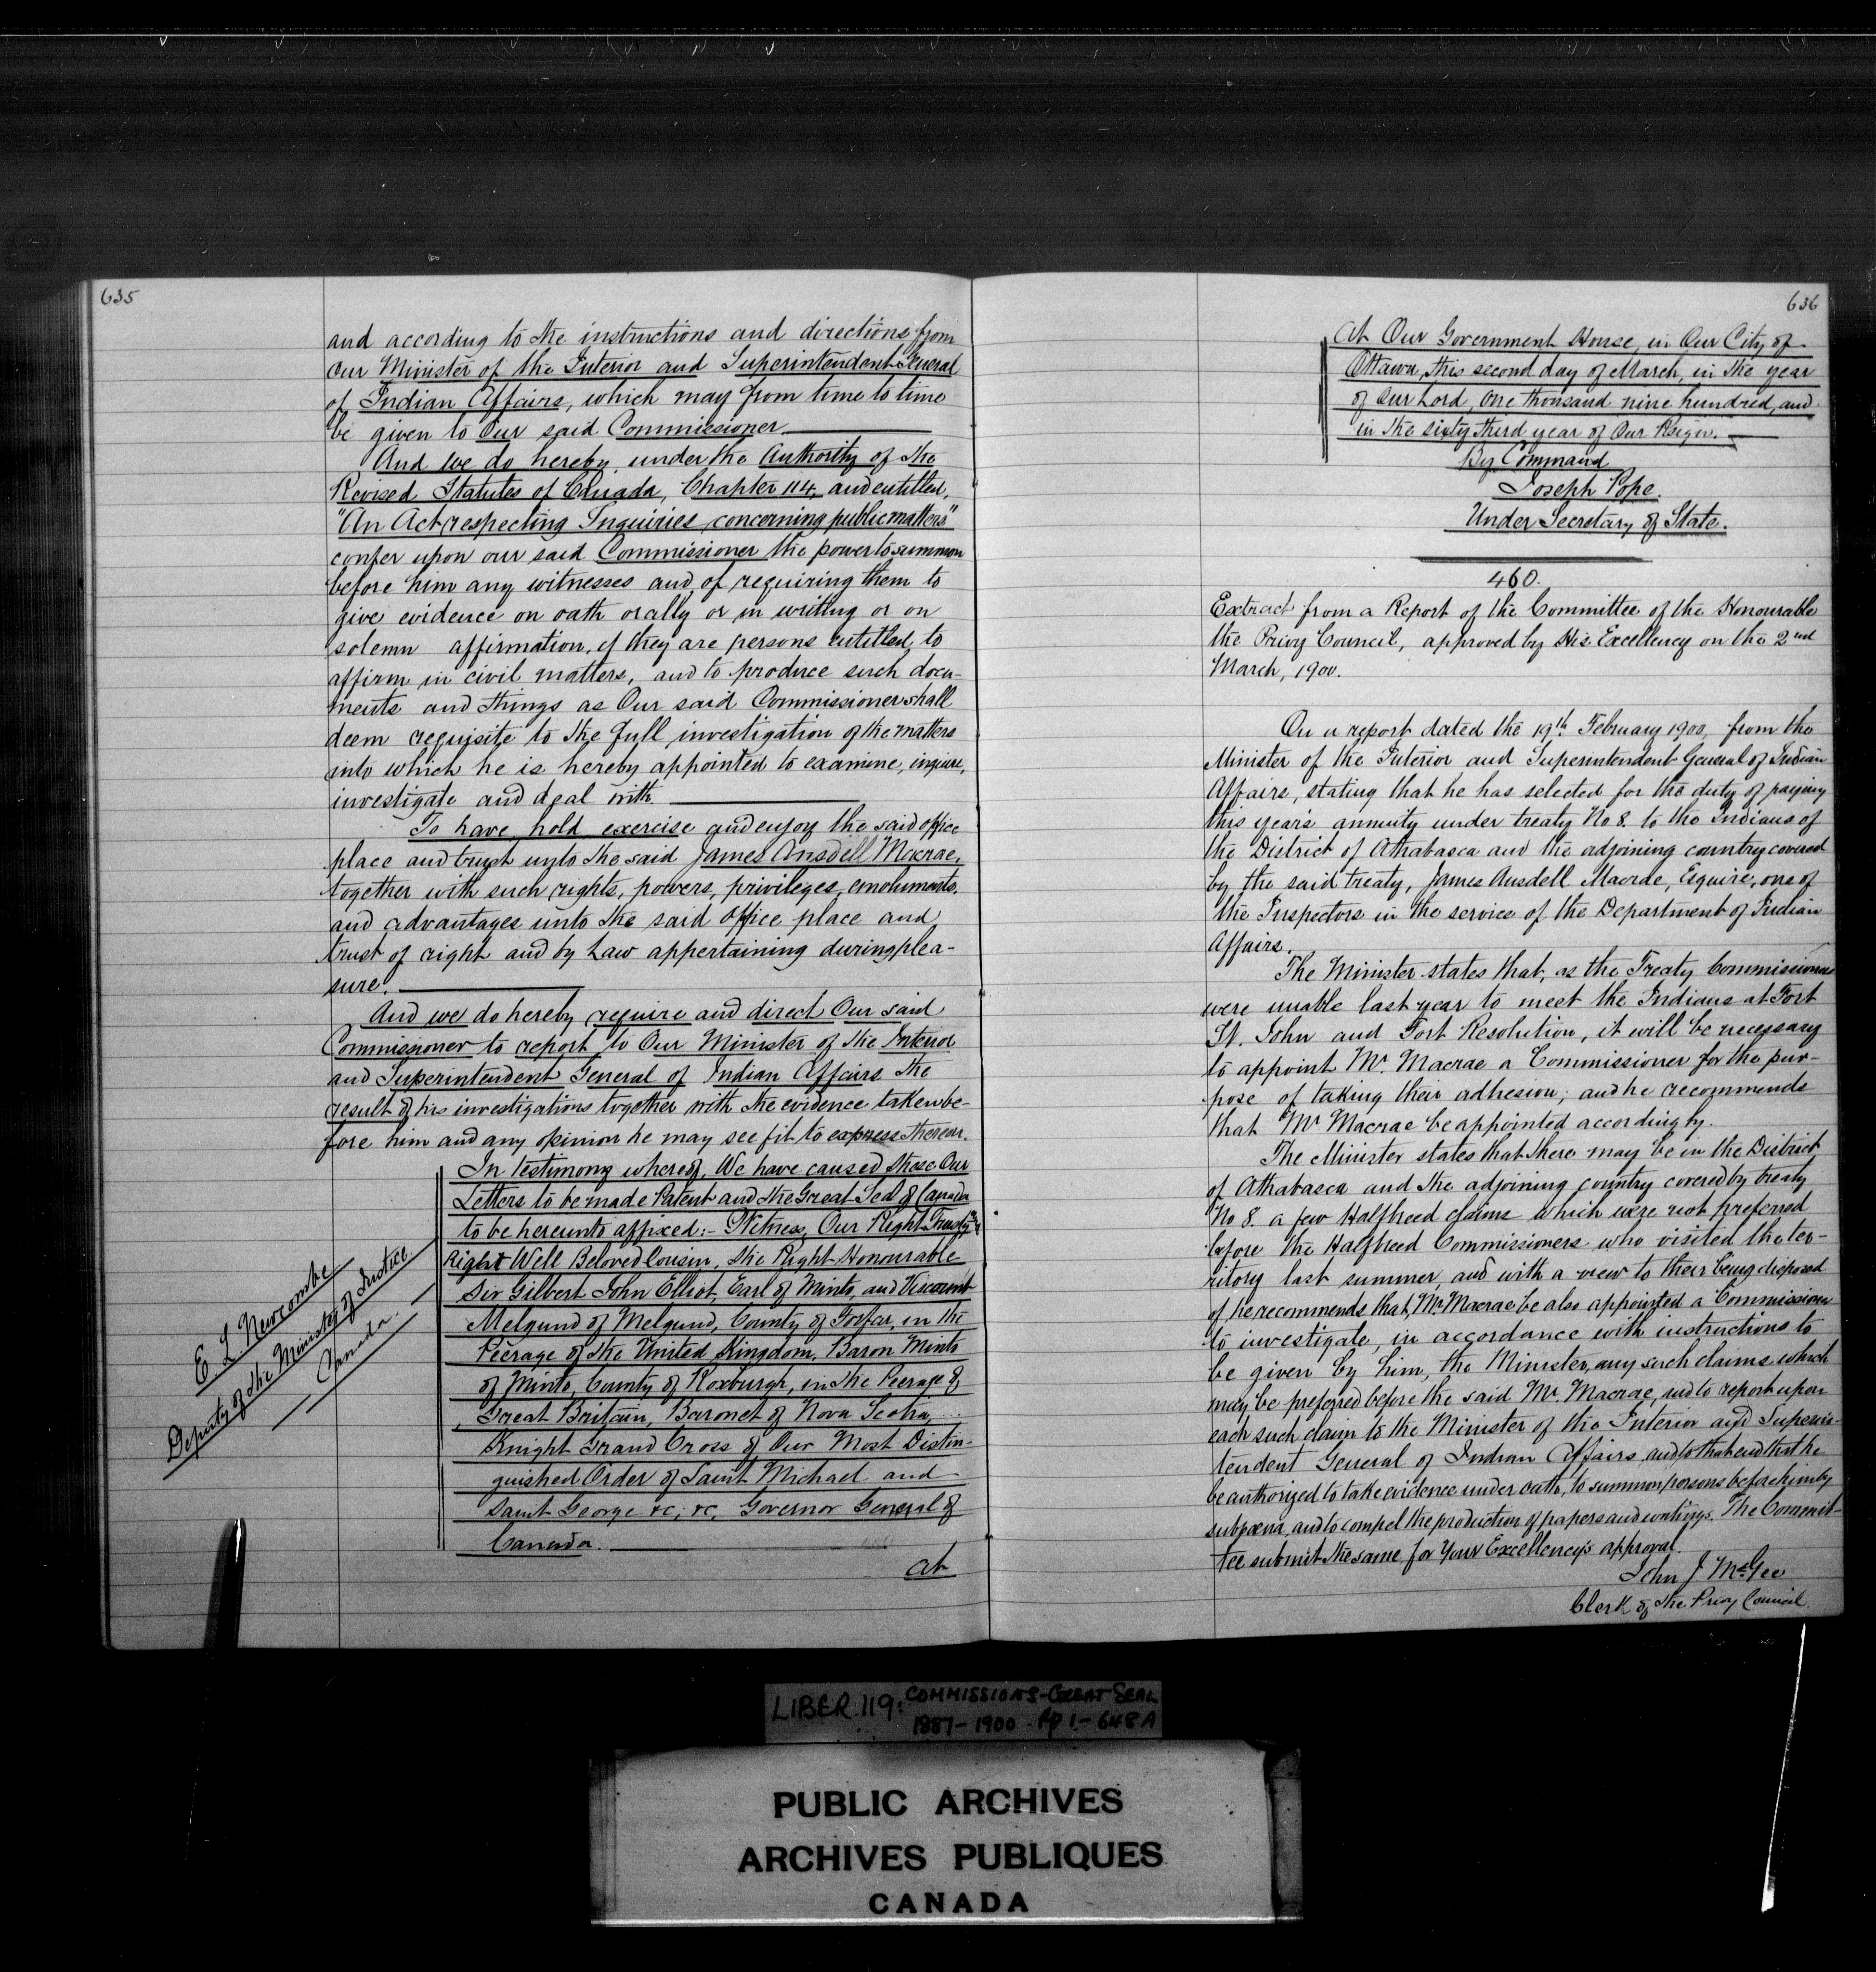 635
and according to the instructions and directions from
our Minister of the Interior and Superintendent General
of Indian Affairs, which may from time to time
be given to Our said Commissioner
And we do hereby under the Authority of the
Revised Statutes of Canada, Chapter 114, and entitled,
"An Act respecting Inquiries concerning public matters"
confer upon our said Commissioner the power to summon
before him any witnesses and of requiring them to
give evidence on oath orally or in writing or on
solemn affirmation, if they are persons entitled to
affirm in civil matters, and to produce such docu-
ments and things as Our said Commissioner shall
deem requisite to the full investigation of the matters
into which he is hereby appointed to examine, inquire,
investigate and deal with
To have hold exercise and enjoy the said office
place and trust unto the said James Ansdell Macrae,
together with such rights, powers, privileges, emoluments,
and advantages unto the said office place and
trust of right and by Law appertaining during plea-
sure.
And we do hereby require and direct Our said
Commissioner to report to Our Minister of the Interior
and Superintendent General of Indian Affairs the
result of his investigations together with the evidence taken be-
fore him and any opinion he may see fit to express thereon.
In testimony whereof, We have caused these Our
Letters to be made Patent and the Great Seal of Canada
to be hereunto affixed:- Witness, Our Right Trusty and
Right Well Beloved Cousin, the Right Honourable
Sir Gilbert John Elliot, Earl of Minto, and Viscount
Melgund of Melgund, County of Forfar, in the
Peerage of the United Kingdom, Baron Minto
of Minto, County of Roxburgh, in the Peerage of
Great Britain, Baronet of Nova Scotia,
Knight Grand Cross of Our Most Distin-
guished Order of Saint Michael and
Saint George &c, &c, Governor General of
Canada.
At
E. L. Newcombe
Deputy of the Minister of Justice
Canada.
636
At Our Government House, in Our City of
Ottawa, this second day of March, in the year
of Our Lord, One thousand nine hundred, and
in the sixty third year of Our Reign.
By Command
Joseph Pope.
Under Secretary of State.
460.
Extract from a Report of the Committee of the Honourable
the Privy Council, approved by His Excellency on the 2nd
March, 1900.
On a report dated the 19th February 1900, from the
Minister of the Interior and Superintendent General of Indian
Affairs, stating that he has selected for the duty of paying
this year's annuity under treaty No 8. to the Indians of
the District of Athabasca and the adjoining country covered
by the said treaty, James Ansdell Macrae, Esquire, one of
the Inspectors in the service of the Department of Indian
Affairs.
The Minister states that, as the Treaty Commissioners
were unable last year to meet the Indians at Fort
St. John and Fort Resolution, it will be necessary
to appoint Mr. Macrae a Commissioner for the pur-
pose of taking their adhesion; and he recommends
that Mr Macrae be appointed accordingly.
The Minister states that there may be in the District
of Athabasca and the adjoining country covered by treaty
No 8. a few Halfbreed claims which were not preferred
before the Halfbreed Commissioners who visited the ter-
ritory last summer, and with a view to their being disposed
of he recommends that, Mr. Macrae be also appointed a Commissioner
to investigate, in accordance with instructions to
be given by him, the Minister, any such claims which
may be preferred before the said Mr. Macrae, and to report upon
each such claim to the Minister of the Interior and Superin-
tendent General of Indian Affairs, and to that end that he
be authorized to take evidence under oath, to summon persons before him by
subpoena, and to compel the production of papers and writings. The Commit-
tee submit the same for Your Excellency's approval.
John J McGee
Clerk of the Privy Council.
LIBER.119: COMMISSIONS-GREAT SEAL
1887-1900 - Pp 1.-648A
PUBLIC ARCHIVES
ARCHIVES PUBLIQUES
CANADA